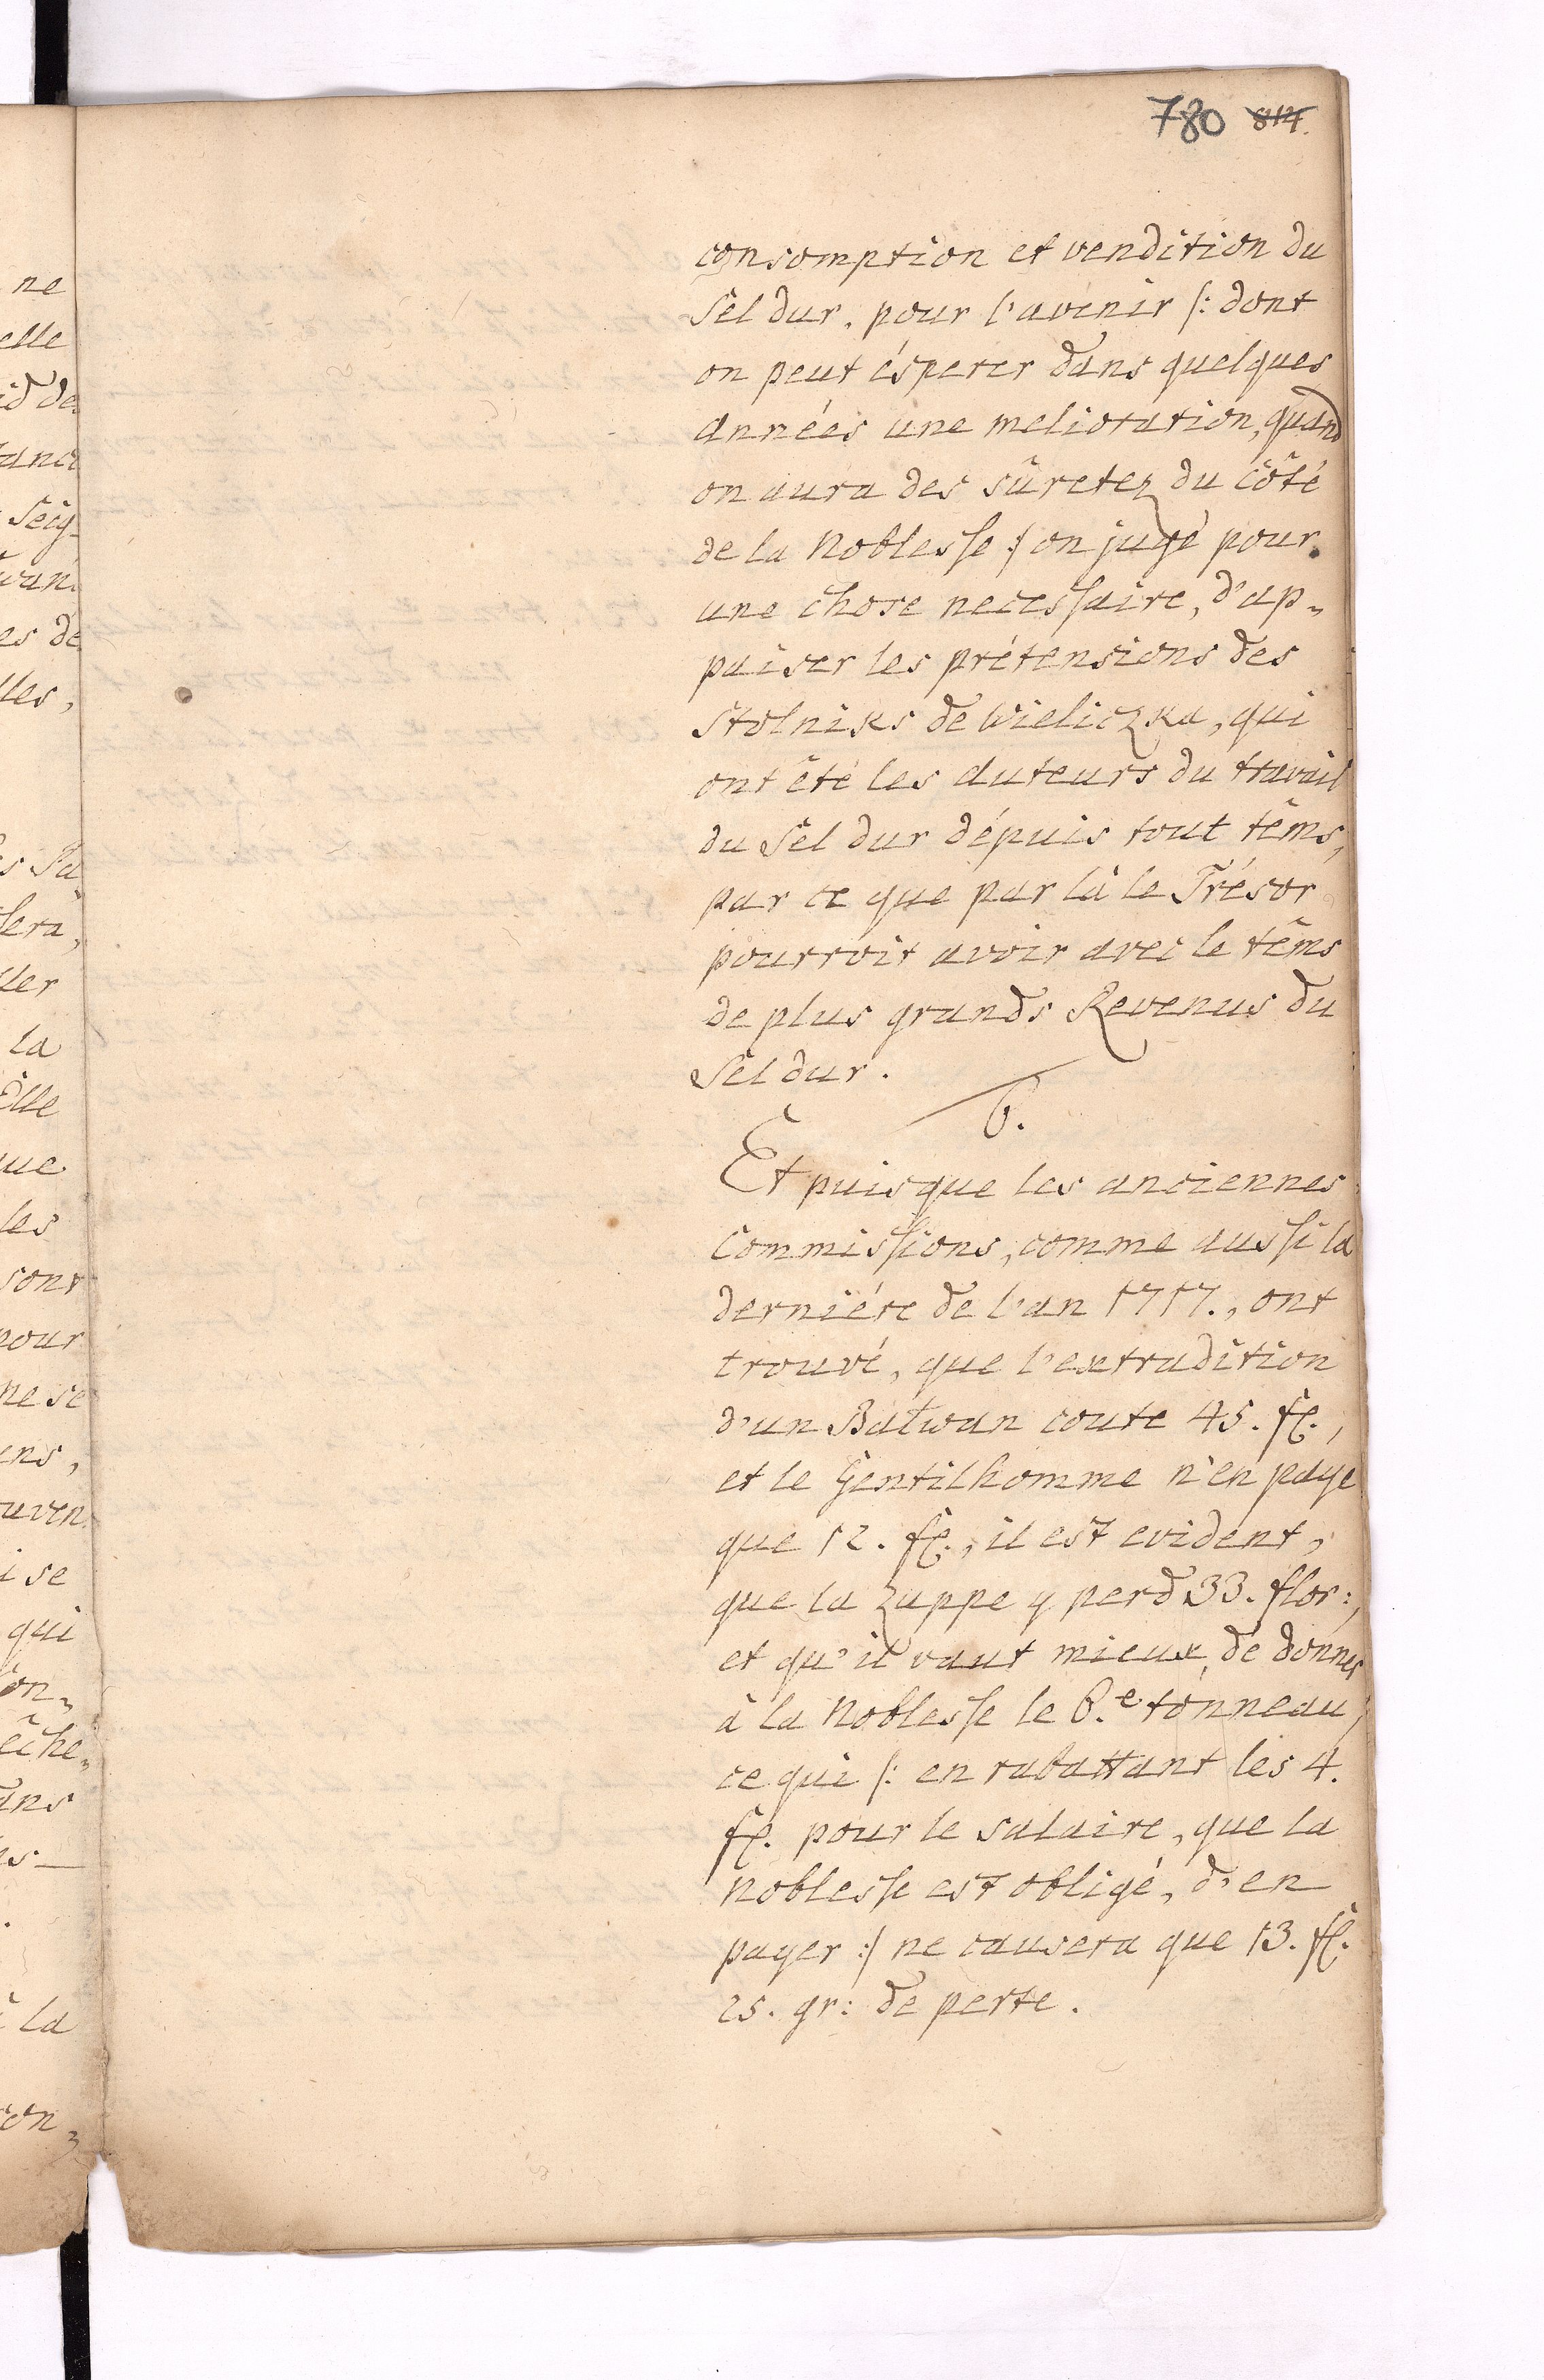 780 814.
consomption et vendition du
Sel dur, pour l'avenir /: dont
on peut ésperer dans quelques
années une melioration, quand
on aura des sûretez du côté
de la Noblesse :/ on juge pour
une chose necessaire, d'ap„
paiser les prétensions des
Stolniks de Wieliczka, qui
ont êté les auteurs du travail
du Sel dur dépuis tout têms,
par ce que par là le Trésor
pourroit avoir avec le têms
de plus grands Revenus du
Sel dur.
6.
Et puisque les anciennes
Commissions, comme aussi la
derniére de l'an 1717., ont
trouvé, que l'extradition
d'un Bałwan coute 45. fl.,
et le Gentilhomme n'en paye
que 12. fl., il est evident,
que la Zuppe y perd 33. flor:,
et qu'il vaut mieux, de donner
à la Noblesse le 6.e tonneau,
ce qui /: en rabattant les 4.
fl. pour le salaire, que la
Noblesse est obligé, d'en
payer :/ ne causera que 13. fl.
25. gr: de perte.
ne
elle
id de
les,
la
Elle
les
sont
pour
ne se
i se
qui
la